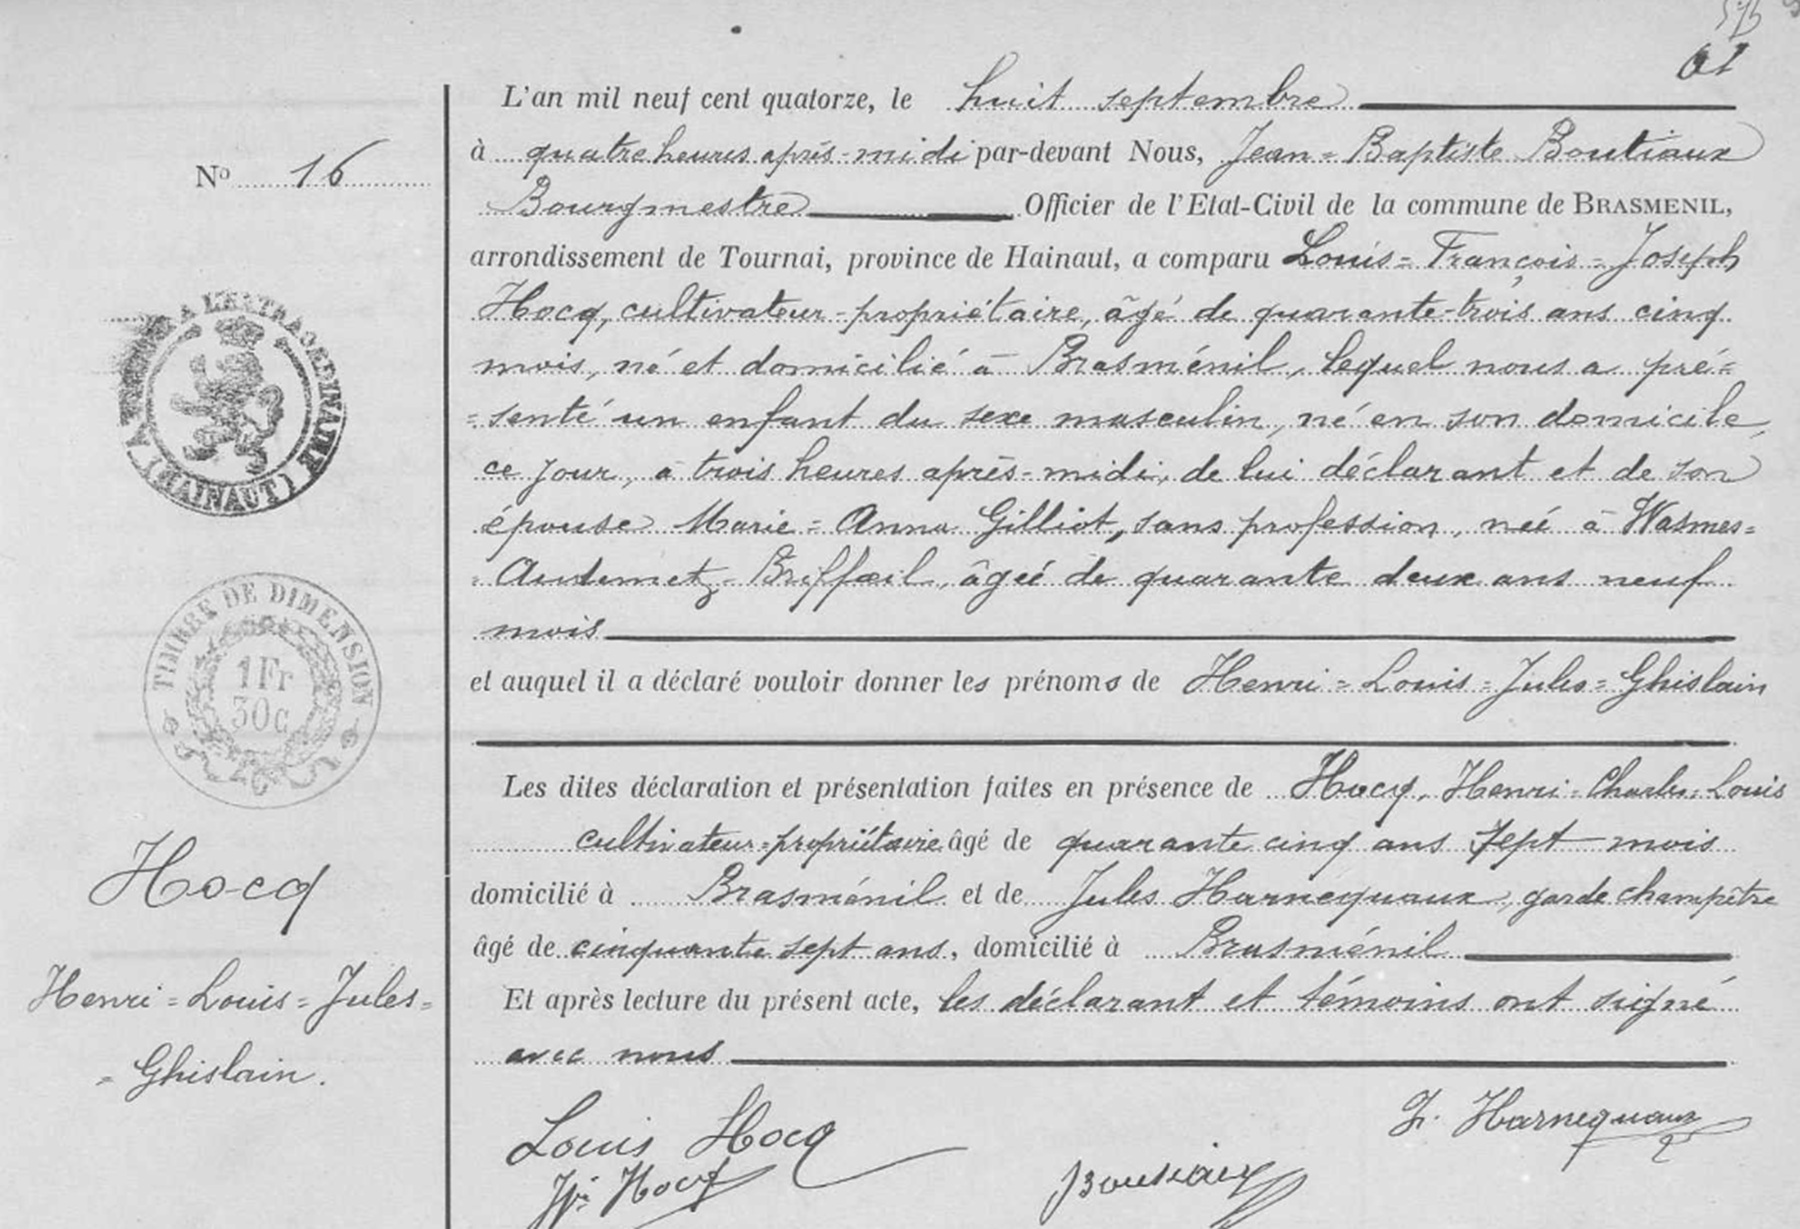 61
L'an mil neuf cent quatorze, le huit septembre
Nº 16
à quatre heures après-midi par-devant Nous, Jean=Baptiste Boutiaux
Bourgmestre Officier de l'Etat-Civil de la commune de BRASMENIL,
arrondissement de Tournai, province de Hainaut, a comparu Louis=François=Joseph
Hocq, cultivateur-propriétaire, âgé de quarante-trois ans cinq
mois, né et domicilié à Brasménil, lequel nous a pré=
=senté un enfant du sexe masculin, né en son domicile,
ce jour, à trois heures après-midi, de lui déclarant et de son
épouse Marie=Anna Gilliot, sans profession, neé à Wasmes=
=Audemetz-Briffœil, âgeé de quarante deux ans neuf
mois
et auquel il a déclaré vouloir donner les prénoms de Henri=Louis=Jules=Ghislain
Les dites déclaration et présentation faites en présence de Hocq, Henri=Charles=Louis
cultivateur=propriétaire âgé de quarante cinq ans sept mois
domicilié à Brasménil et de Jules Harnequaux, garde champêtre
âgé de cinquante sept ans, domicilié à Brasménil
Et après lecture du présent acte, les déclarant et témoins ont signé
avec nous
A L'EXTRAORDINAIRE
(HAINAUT)
TIMBRE DE DIMENSION
1Fr
30c
Hocq
Henri=Louis=Jules=
=Ghislain.
Louis Hocq
J. Harnequaux
Hri Hocq
Boutiaux